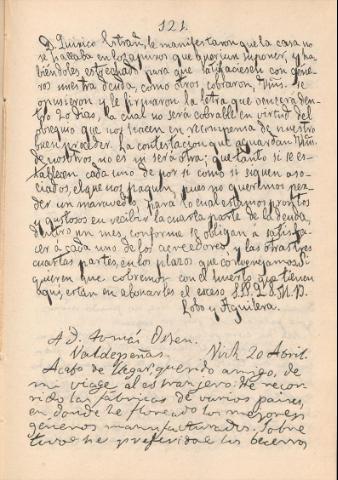 121.
D. Quirico Estrañ, le manifestaron que la casa no
se hallaba en los apuros que querian suponer, y ha-
biéndoles estrechado para que satisfaciesen con géne-
ros nuestra deuda, como otros cobraron, Vms. se
opusieron y le firmaron la letra que vencerá den-
tro 20 dias, la cual no será cobrable en virtud del
obsequio que nos hacen en recompensa de nuestro
buen proceder. La contestacion que aguardan Vms.
de nosotros no es ni será otra; que tanto si se es-
tablecen cada uno de por sí como si siguen aso-
ciados, el que nos paguen, pues no queremos per-
der un maravedí, para lo cual estamos prontos
y gustosos en recibir la cuarta parte de la deuda,
dentro un mes, conforme se obligan á satisfa-
cer á cada uno de los acreedores, y las otras tres
cuartas partes, en los plazos que convengamos. Si
quieren que cobremos con el huerto que tienen
aquí, están en abonarles el exceso S.S. Q. S. M. B.
Lobo y Aguilera.
A D. Tomás Osben.
Valdepeñas. Vich 20 Abril.
Acabo de llegar, querido amigo, de
mi viage al estrangero: He recor-
rido las fábricas de varios paises,
en donde he floreado los mejores
géneros manufacturados. Sobre
todo he preferido los becerros